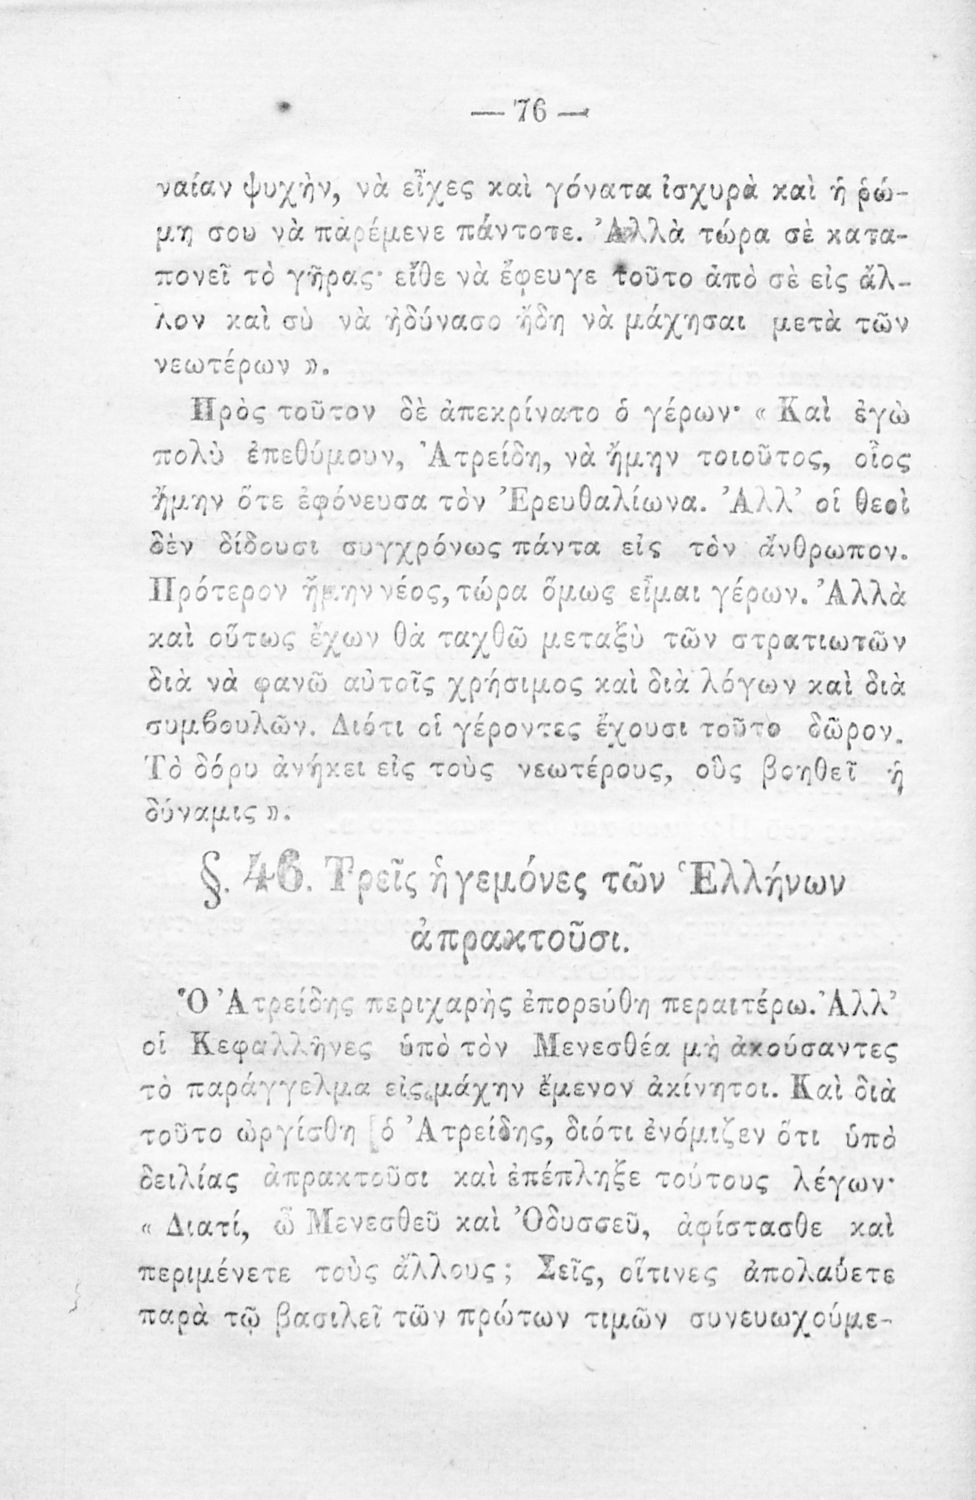 — 76 —
ναίαν ψυχὴν, νὰ εἶχες καὶ γόνατα ἰσχυρὰ καὶ ἡ ῥώ-
μη σου νὰ παρέμενε πάντοτε. Ἀλλὰ τώρα σὲ κατα-
πονεῖ τὸ γῆρας· εἴθε νὰ ἔφευγε τοῦτο ἀπὸ σὲ εἰς ἄλ-
λον καὶ σὺ νὰ ἠδύνασο ἤδη νὰ μάχησαι μετὰ τῶν
νεωτέρων ».
Πρὸς τοῦτον δὲ ἀπεκρίνατο ὁ γέρων· « Καὶ ἐγὼ
πολὺ ἐπεθύμουν, Ἀτρείδη, νὰ ἤμην τοιοῦτος, οἷος
ἤμην ὅτε ἐφόνευσα τὸν Ἐρευθαλίωνα. Ἀλλ' οἱ θεοὶ
δὲν δίδουσι συγχρόνως πάντα εἰς τὸν ἄνθρωπον.
Πρότερον ἤμην νέος, τώρα ὅμως εἶμαι γέρων. Ἀλλὰ
καὶ οὕτως ἔχων θὰ ταχθῶ μεταξὺ τῶν στρατιωτῶν
διὰ νὰ φανῶ αὐτοῖς χρήσιμος καὶ διὰ λόγων καὶ διὰ
συμβουλῶν. Διότι οἱ γέροντες ἔχουσι τοῦτο δῶρον.
Τὸ δόρυ ἀνήκει εἰς τοὺς νεωτέρους, οὓς βοηθεῖ ἡ
δύναμις ».
§. 46. Τρεῖς ἡγεμόνες τῶν Ἑλλήνων
ἀπρακτοῦσι.
Ὁ Ἀτρείδης περιχαρὴς ἐπορεύθη περαιτέρω. Ἀλλ'
οἱ Κεφαλλῆνες ὑπὸ τὸν Μενεσθέα μὴ ἀκούσαντες
τὸ παράγγελμα εἰς μάχην ἔμενον ἀκίνητοι. Καὶ διὰ
τοῦτο ὠργίσθη ὁ Ἀτρείδης, διότι ἐνόμιζεν ὅτι ὑπὸ
δειλίας ἀπρακτοῦσι καὶ ἐπέπληξε τούτους λέγων·
« Διατί, ὦ Μενεσθεῦ καὶ Ὀδυσσεῦ, ἀφίστασθε καὶ
περιμένετε τοὺς ἄλλους ; Σεῖς, οἵτινες ἀπολαύετε
παρὰ τῷ βασιλεῖ τῶν πρώτων τιμῶν συνευωχούμε-